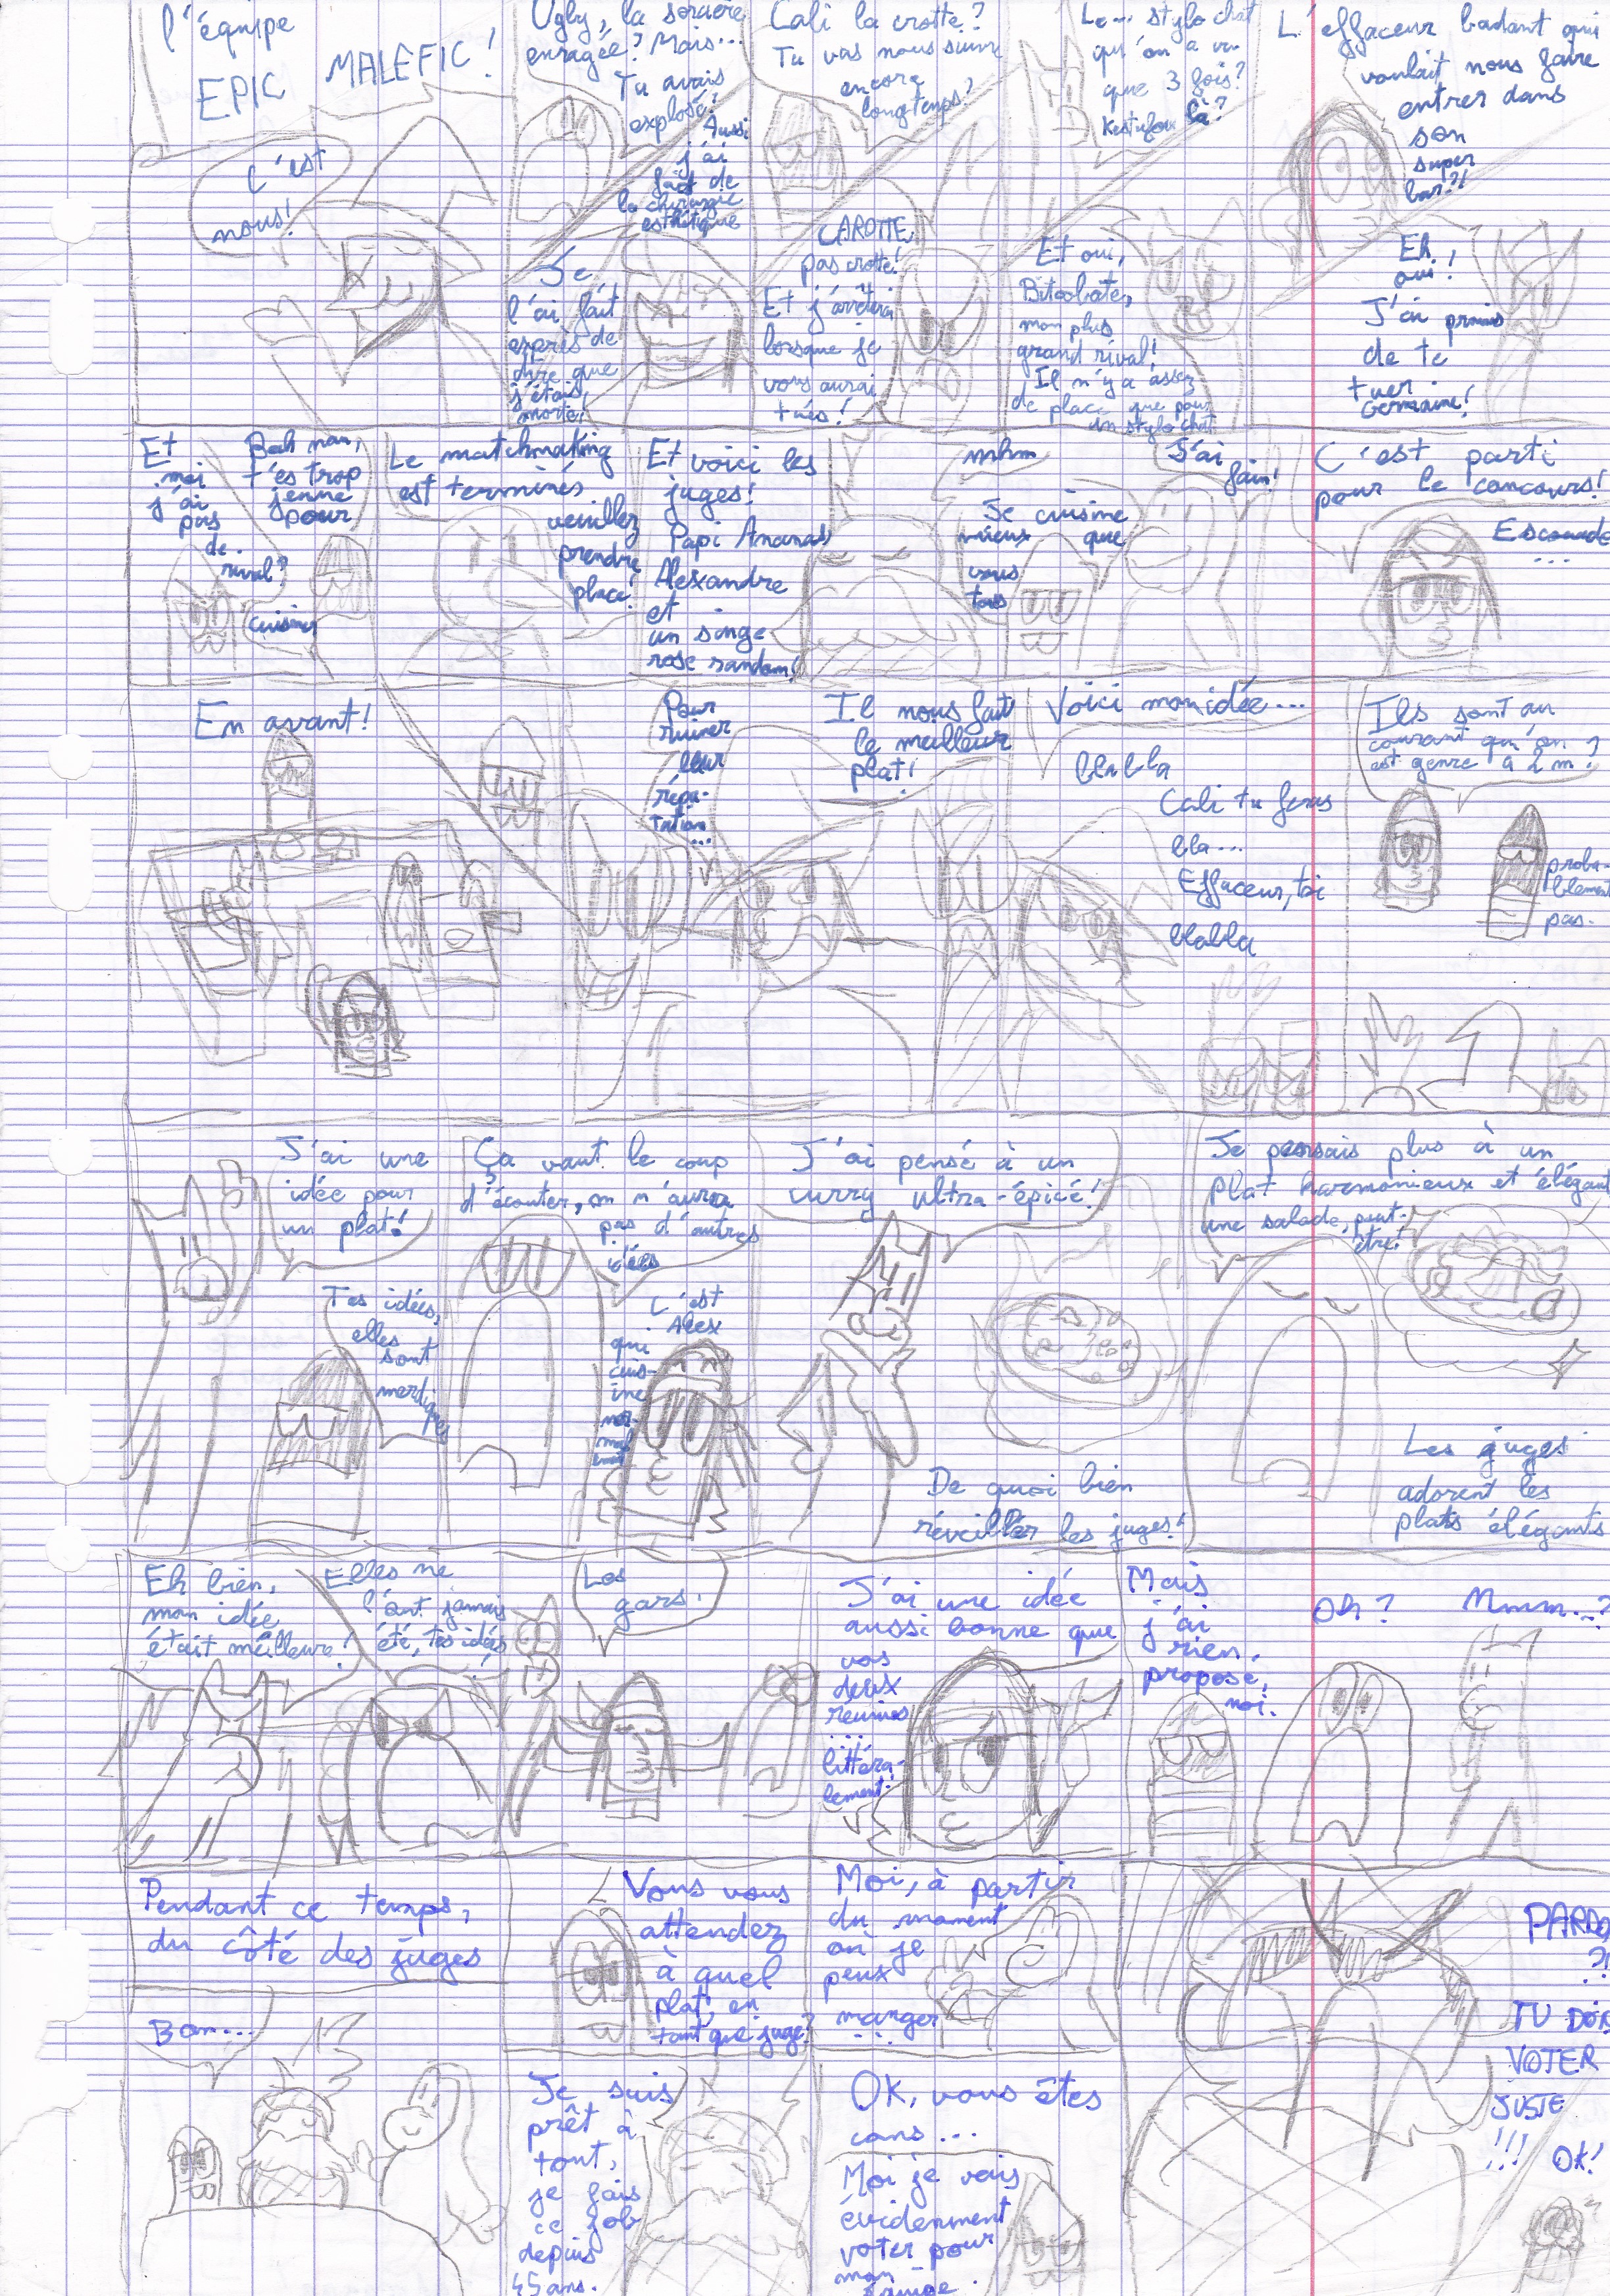 l'équipe
EPIC MALEFIC !
C'est
nous!
Ugly, la sorcière
enragée? Mais...
Tu avais
explosé!
Aussi
j'ai
fait de
la chirurgie
esthétique
Je
l'ai fait
exprès de
dire que
j'étais
morte!
Cali la crotte?
Tu vas nous suivre
encore
longtemps?
CAROTTE,
pas crotte!
Et j'arrêterai
lorsque je
vous aurai
tués!
Le... stylo chat
qu'on a vu
que 3 fois?
Kestufou là?
Et oui,
mon plus
grand rival!
Il n'y a assez
de place que pour
un stylo chat
L'effaceur badant qui
voulait nous faire
entrer dans
son
super
bar?!
Eh
oui!
J'ai promis
de te
tuer
Germaine!
Et
moi
j'ai
pas
de
rival?
Bah non,
t'es trop
jeune
pour
cuisiner
Le matchmaking
est terminés.
veuillez
prendre
place!
Et voici les
juges!
Papi Ananas
Alexandre
et
un singe
rose random!
mhm
Je cuisine
mieux que
vous
tous
J'ai
faim!
C'est parti
pour le concours!
Escouade
...
En avant!
Pour
ruiner
leur
répu-
tation
...
Il nous faut
le meilleur
plat!
Voici mon idée...
blabla
Cali tu feras
bla...
Effaceur, toi
blabla
Ils sont au
courant qu'on
est genre à 2 m?
proba-
blement
pas.
J'ai une
idée pour
un plat!
Tes idées,
elles
sont
merdiques
Ça vaut le coup
d'écouter, on n'aura
pas d'autres
idées
C'est
Alex
qui
cuis-
ine
nor-
mal
ement
J'ai pensé à un
curry ultra-épicé!
De quoi bien
réveiller les juges!
Je pensais plus à un
plat harmonieux et élégant
une salade, peut-
être!
Les juges
adorent les
plats élégants
Eh bien,
mon idée
était meilleure!
Elles ne
l'ont jamais
été, tes idées
!
Les
gars.
J'ai une idée
aussi bonne que
vos
deux
réunies
...
littéra-
lement.
Mais
j'ai
rien
proposé,
moi.
Oh?
Mmm...?
Pendant ce temps,
du côté des juges
Bon...
Vous vous
attendez
à quel
plat, en
tant que juge?
Moi, à partir
du moment
où je
peux
manger
...
PARDO
?!
TU DOIS
VOTER
JUSTE
!!!
OK!
Je suis
prêt à
tout,
je fais
ce job
depuis
45 ans.
OK, vous êtes
cons...
Moi je vais
évidemment
voter pour
mon
équipe.